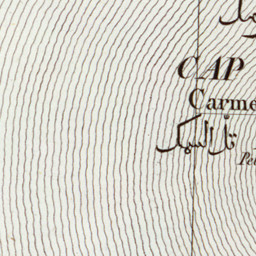 CAP
Carme
تل السمك
Pe